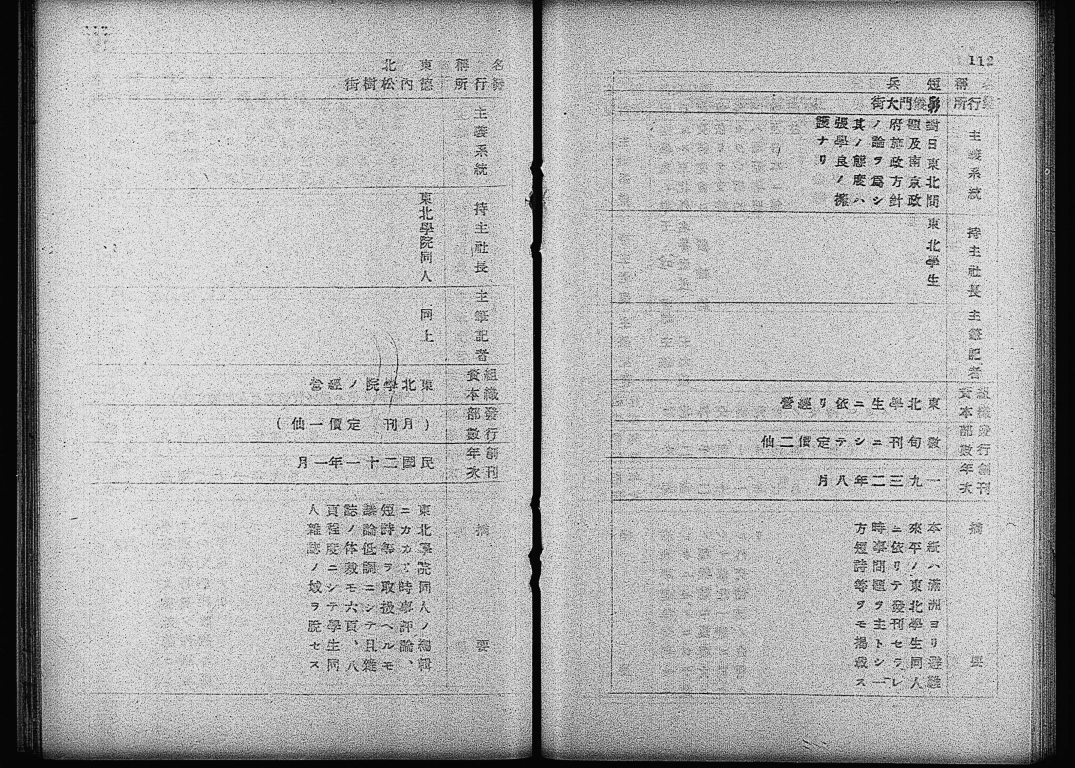 112
名稱
發行所
主義系統
持主社長
主筆記者
組織
資本
發行
部數
創刊
年次
摘要
短
兵
對日東北問
題及南京政
府施政方針
ノ論ヲ爲シ
其ノ態度ハ
張學良ノ擁
護ナリ
東北學生
東北學生ニ依リ經營
旬刊ニシテ定價二仙
一九三二年八月
本紙ハ滿洲ヨリ避難
來平ノ東北學生同人
ニ依リテ發刊セラレ
時事問題ヲ主トシ一
方短詩等ヲモ揭載ス
名稱
發行所
主義系統
持主社長
主筆記者
組織
資本
發行
部數
創刊
年次
摘要
東北
德內松樹街
東北學院同人
同上
東北學院ノ經營
(月刊 定價一仙)
民國二十一年一月
東北學院同人ノ編輯
ニカカリ時事評論、
短詩等ヲ取扱ヘルモ
議論低調ニシテ且雜
誌ノ体裁モ六頁、八
頁程度ニシテ學生同
人雜誌ノ域ヲ脫セス